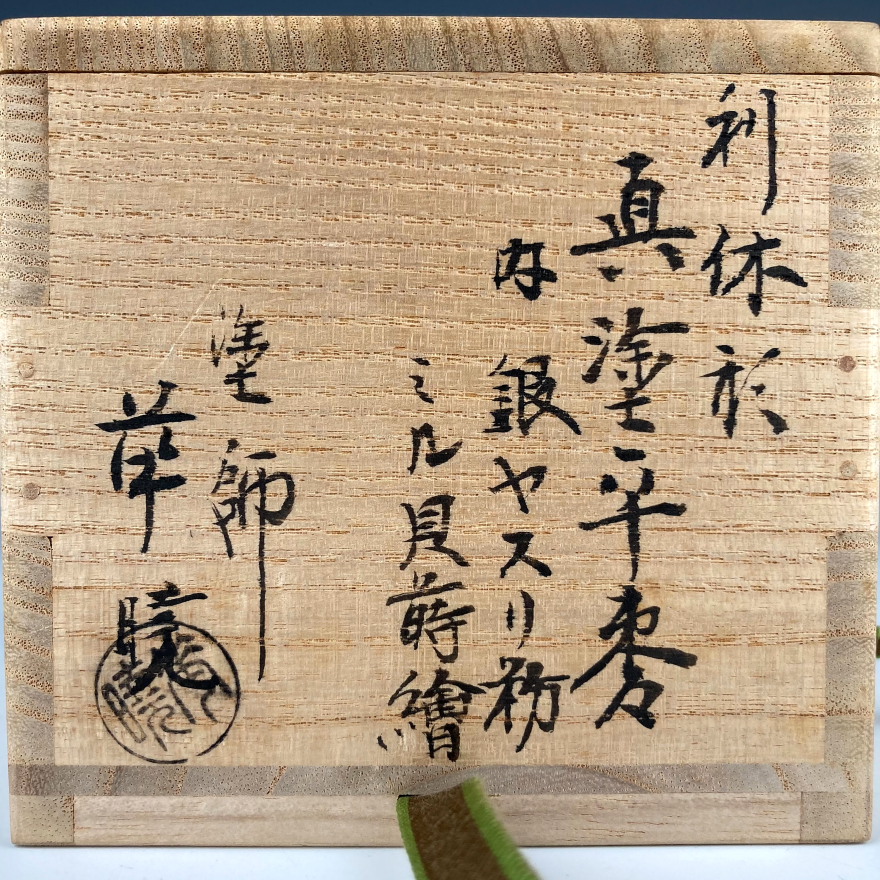 利休形
真塗平棗
内 銀ヤスリ粉
ミル貝蒔繪
塗師
草暁